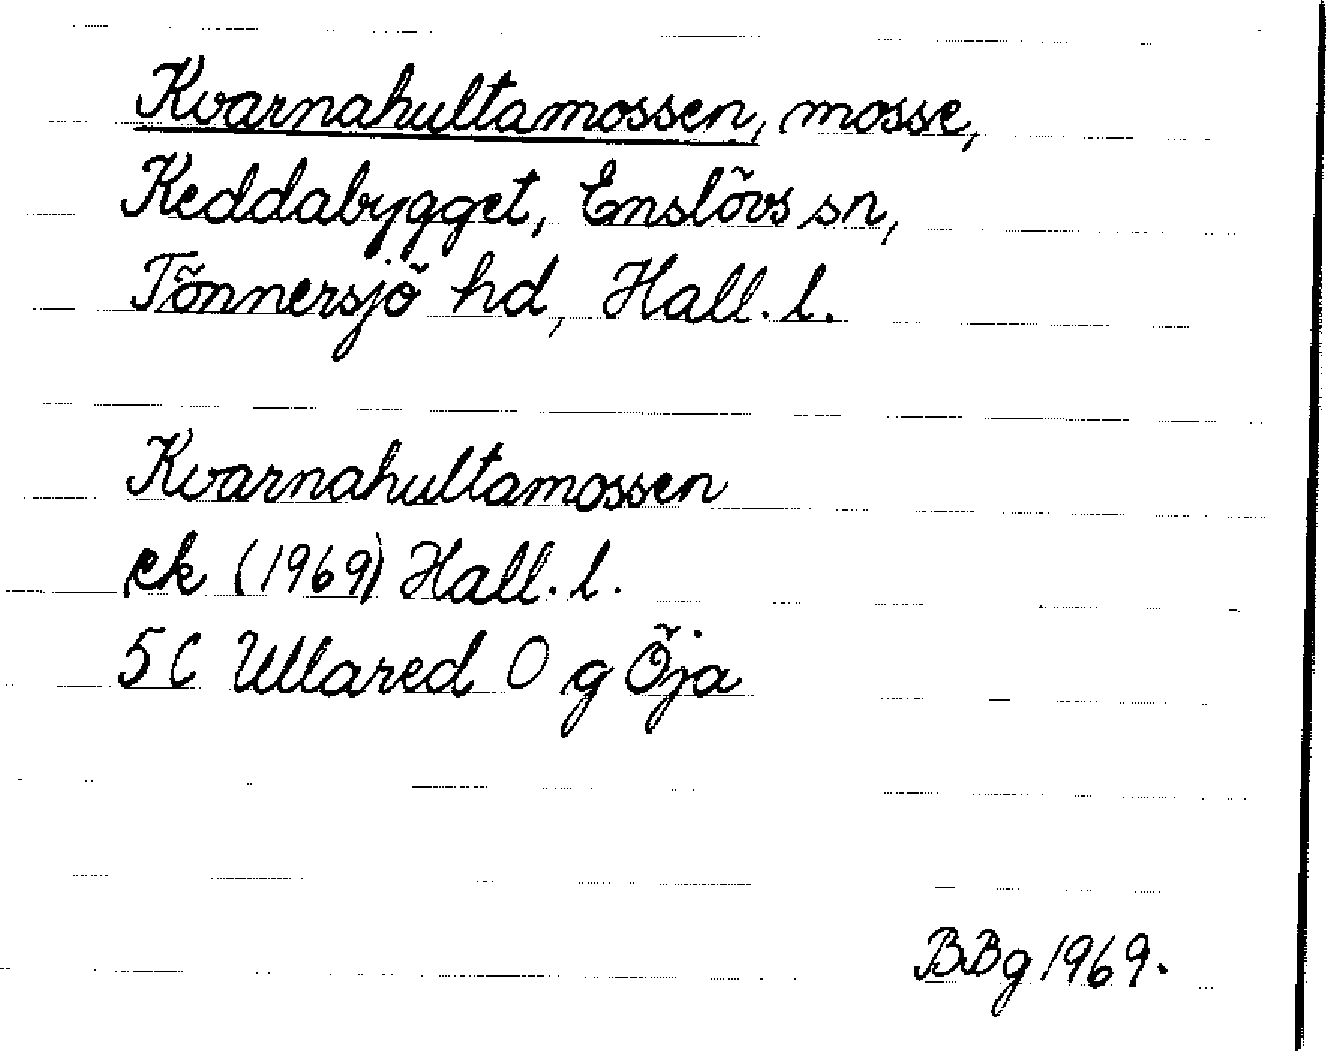 Kvarnahultamossen, mosse,
Keddabygget, Enslövs sn,
Tönnersjö hd, Hall. l.
Kvarnahultamossen
ek (1969) Hall. l.
5C Ullared O g Öja
BBg 1969.